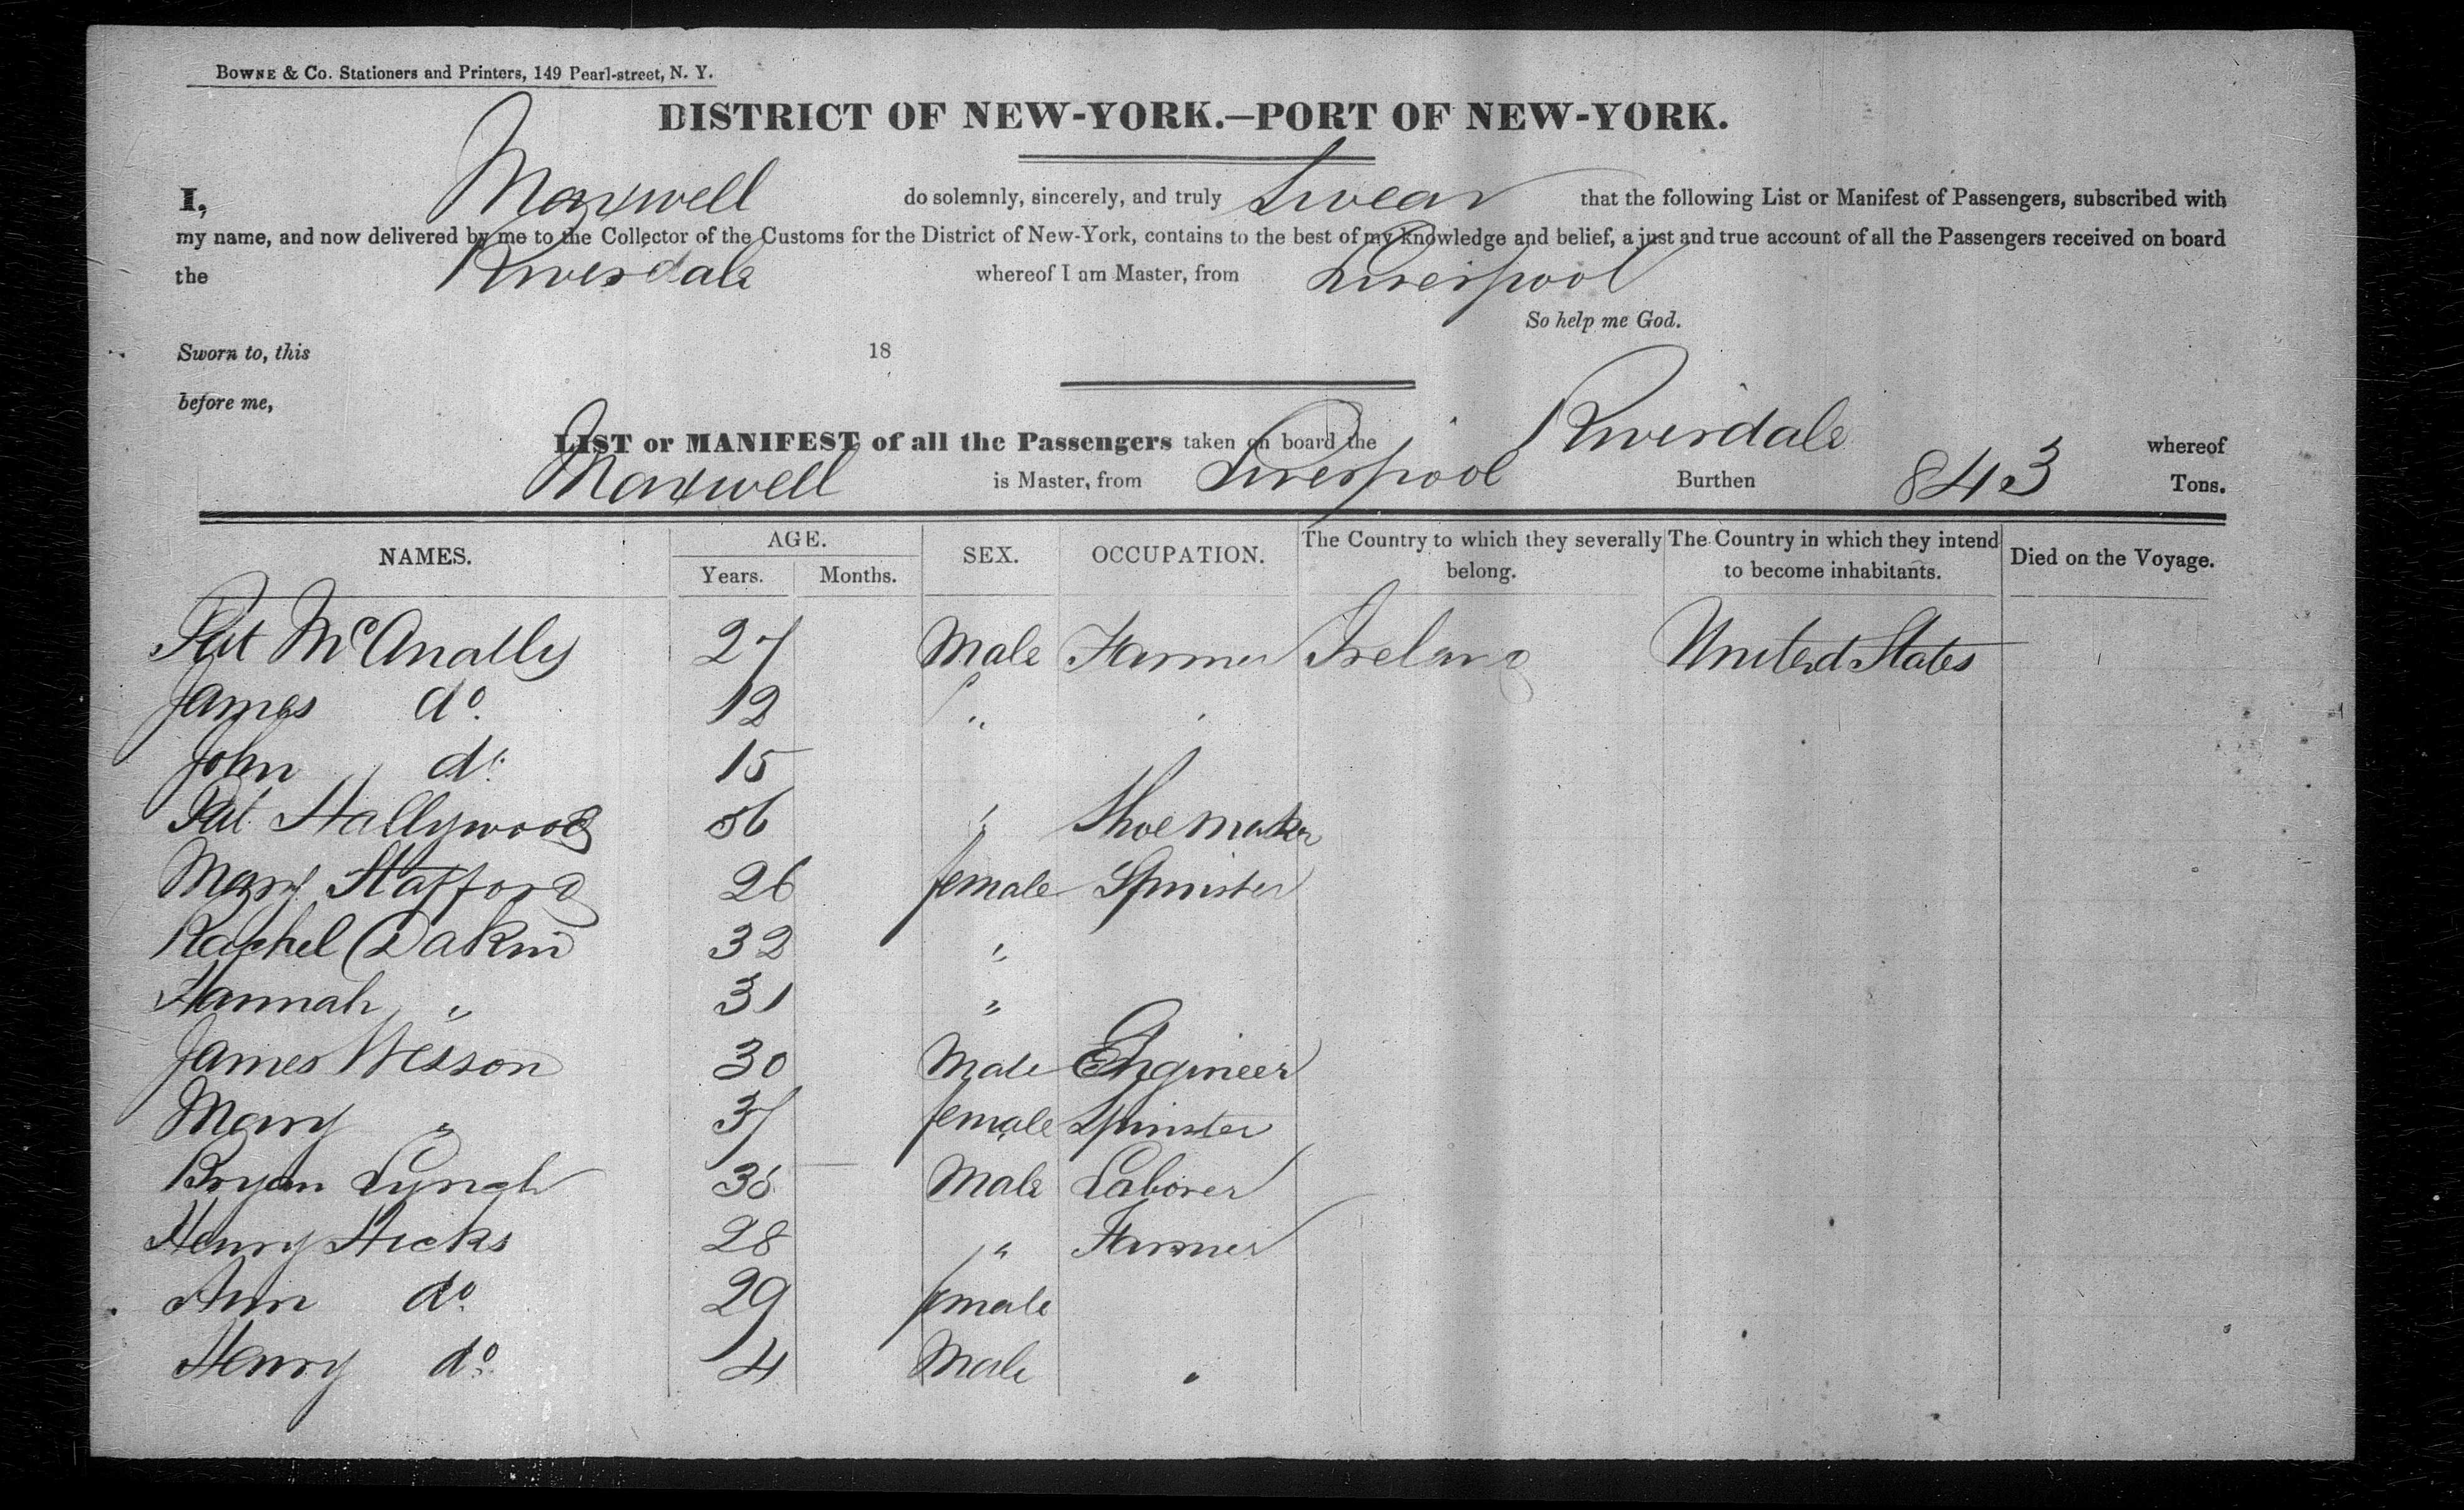 BOWNE & Co. Stationers and Printers, 149 Pearl-street, N. Y.
DISTRICT OF NEW-YORK.—PORT OF NEW-YORK.
I, Maxwell do solemnly, sincerely, and truly Swear that the following List or Manifest of Passengers, subscribed with
my name, and now delivered by me to the Collector of the Customs for the District of New-York, contains to the best of my knowledge and belief, a just and true account of all the Passengers received on board
the Riverdale whereof I am Master, from Liverpool
So help me God.
Sworn to, this 18
before me,
LIST or MANIFEST of all the Passengers taken on board the Riverdale whereof
Maxwell is Master, from Liverpool Burthen 843 Tons.
NAMES. AGE. Years. Months. SEX. OCCUPATION. The Country to which they severally belong. The Country in which they intend to become inhabitants. Died on the Voyage.
Pat McAnally 27 Male Farmer Ireland United States
James do. 12 "
John do. 15
Pat Hallywood 56 " Shoemaker
Mary Stafford 26 female Spinster
Rachel Dakin 32 "
Hannah " 31 "
James Wesson 30 Male Engineer
Mary " 37 female Spinster
Bryan Lynch Male Laborer
Henry Hicks 28 " Farmer
Ann do. 29 female
Henry do. 4 Male